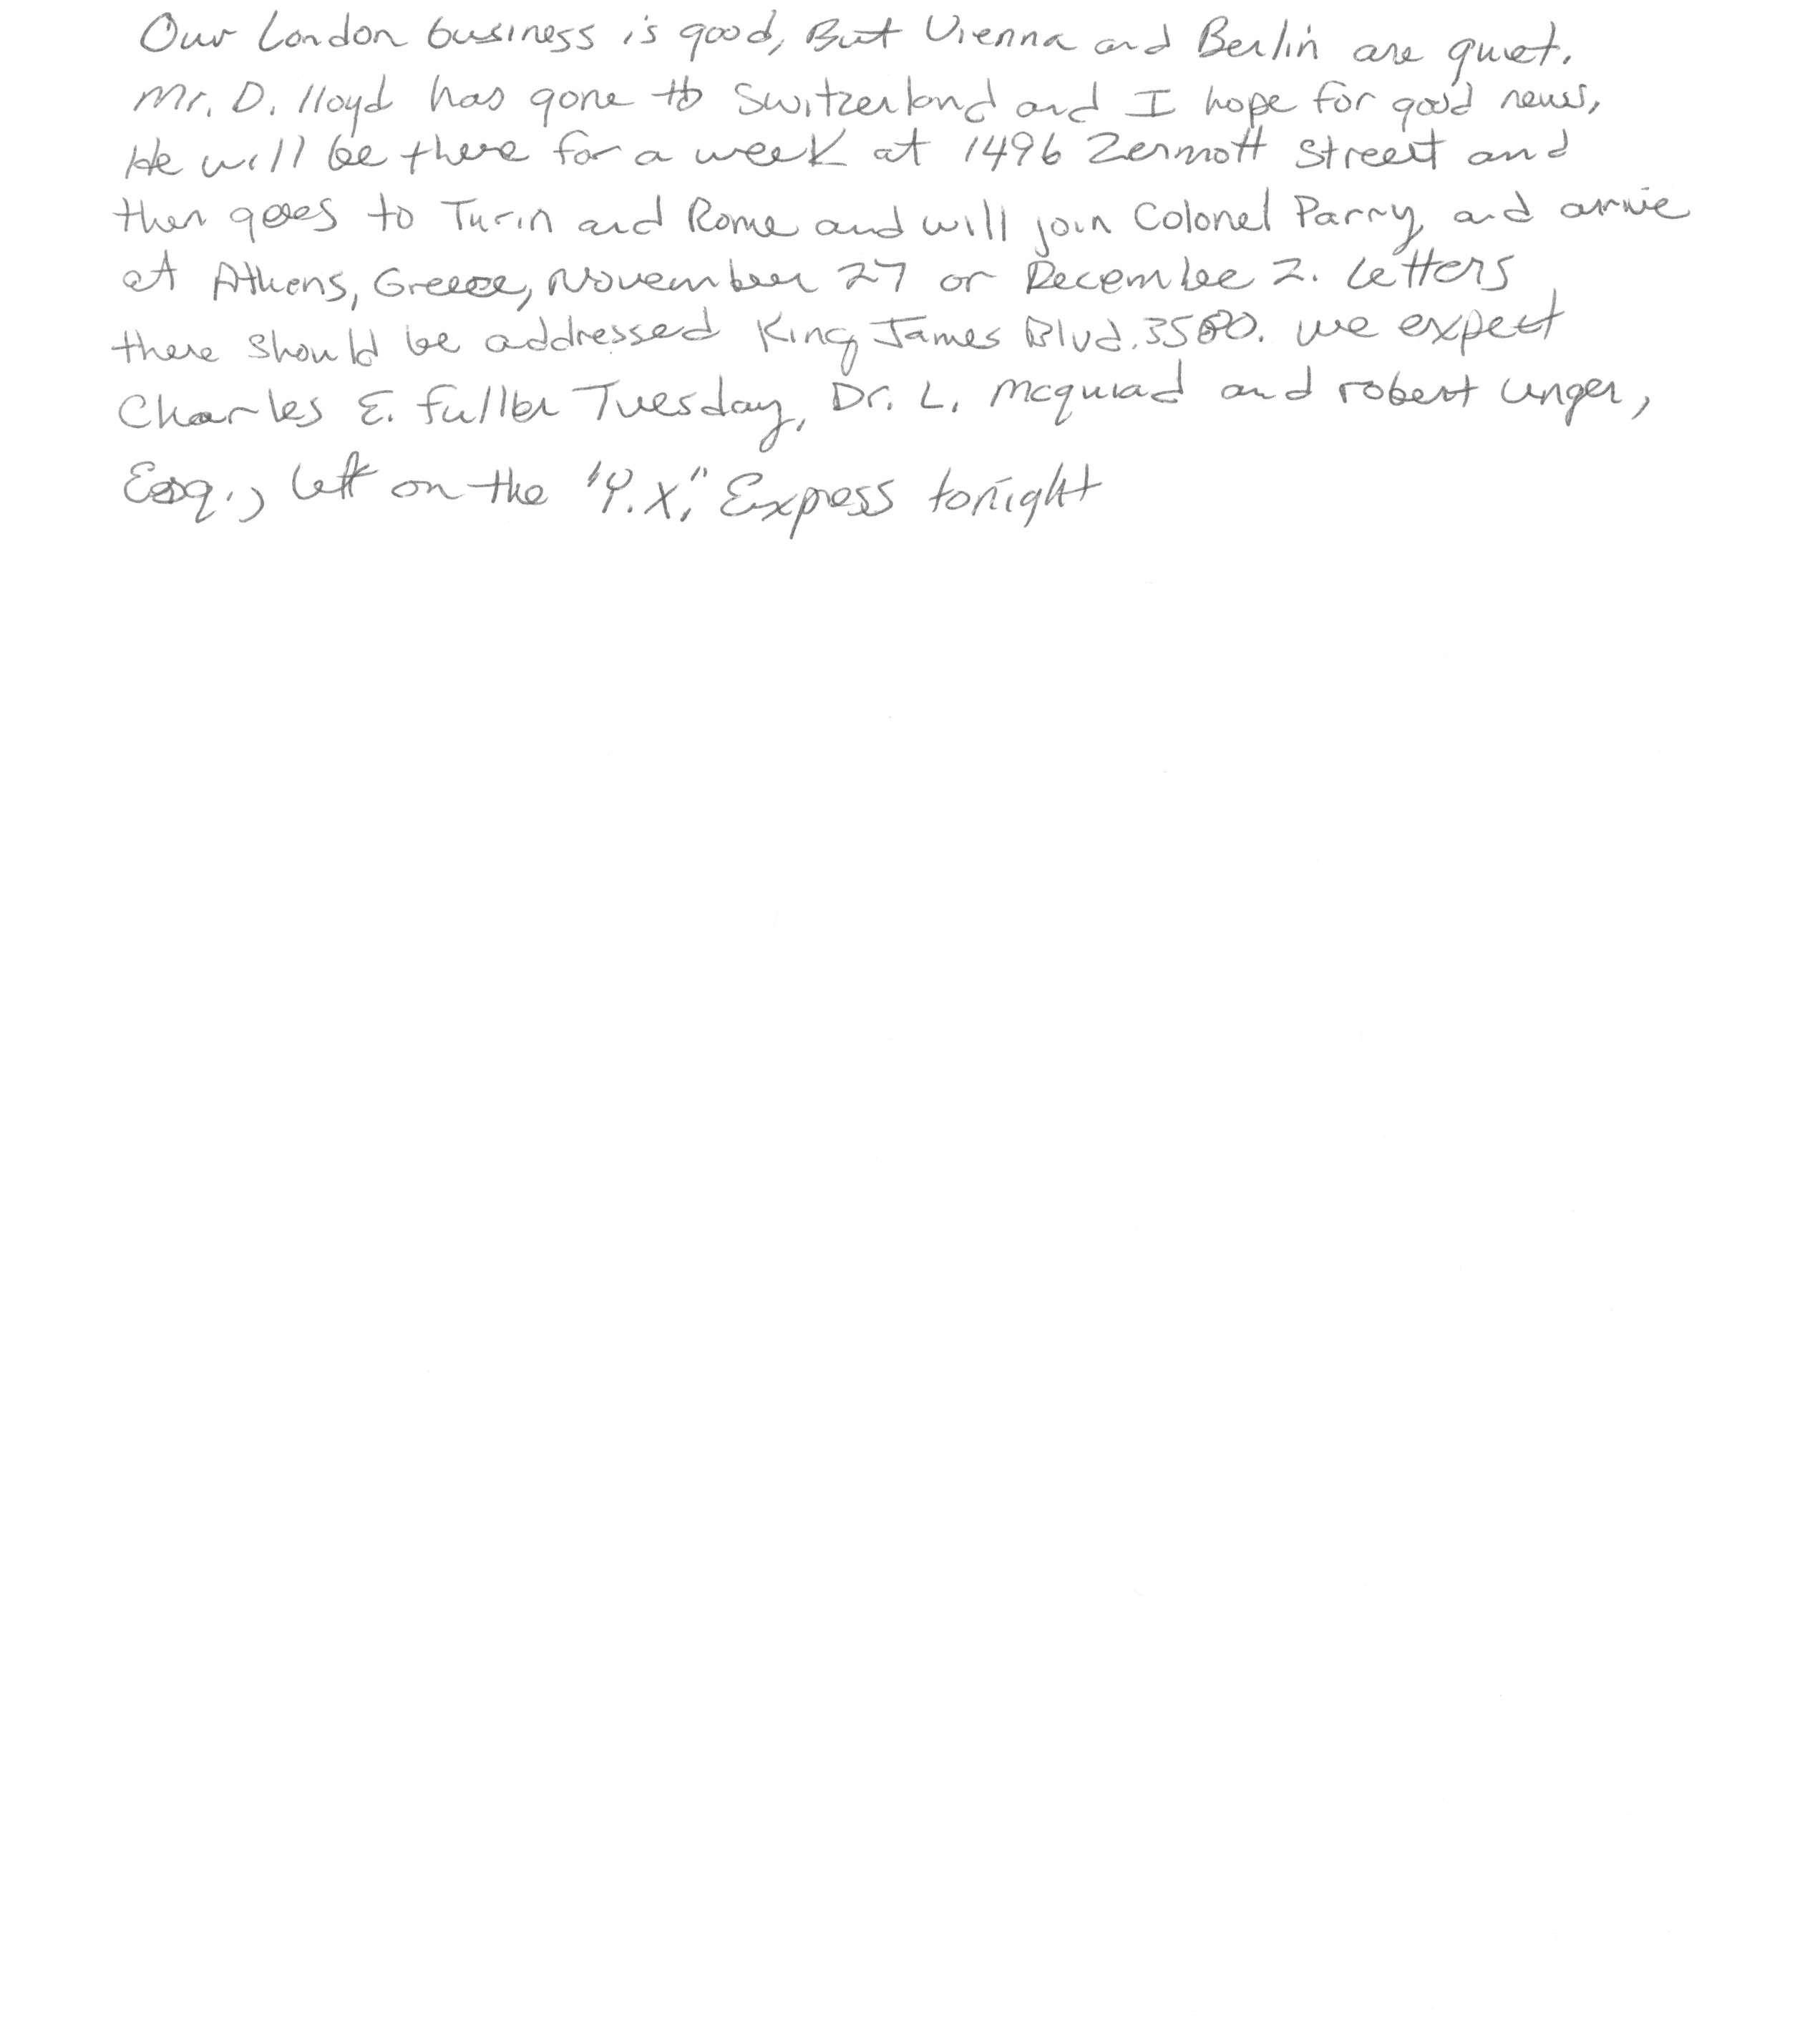 Our London business is good, But Vienna and Berlin are quiet.
Mr. D. lloyd has gone to Switzerland and I hope for good news,
He will be there for a week at 1496 Zermott Street and
then goes to Turin and Rome and will join Colonel Parry and arrive
at Athens, Greece, November 27 or Decembee 2. Letters
there should be addressed King James Blvd. 3580. we expect
Charles E. fuller Tuesday, Dr. L. Mcquiad and robert unger,
Esq., left on the "Y.X." Express tonight